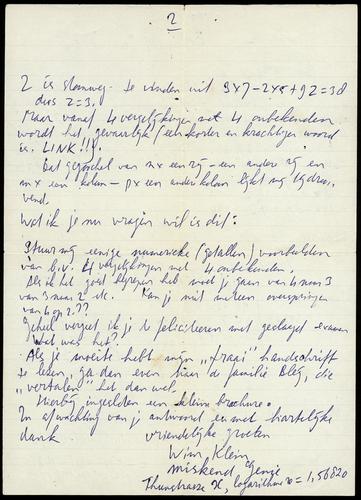 2
Z is stomweg te vinden uit 9x7-2x8+9Z=38
dus Z=3.
Maar vanaf 4 vergelijkingen met 4 onbekenden
wordt het gevaarlijk (een korter en krachtiger woord
is LINK!!!).
Dat gegoochel van n x een rij - een andere rij en
m x een kolom - p x een andere kolom lijkt mij tijdro-
vend.
Wat ik je nu vragen wil is dit:
Stuur mij eenige numerieke (getallen) voorbeelden
van b.v. 4 vergelijkingen met 4 onbekenden.
Als ik het goed begrepen heb moet je gaan van 4 naar 3
van 3 naar 2 etc. Kan je niet ineen overspringen
van 4 op 2??
Geheel vergat ik je te feliciteren met geslaagd examen
Wat was het?
Als je moeite hebt mijn "fraai" handschrift
te lezen, ga dan even naar de familie Bleg, die
"vertalen" het dan wel.
Hierbij ingesloten een kleine brochure.
In afwachting van je antwoord en met hartelijke
dank
vriendelijke groeten
Wim Klein
miskend Genie
Thunstrasse X, logarithme = 1,56820